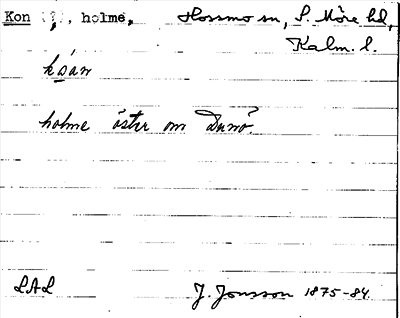 Kon (?), holme, Hossmo sn, S. Möre hd,
Kalm. l.
kơán
holme öster om Dunö
LAL J. Jonsson 1875-84.